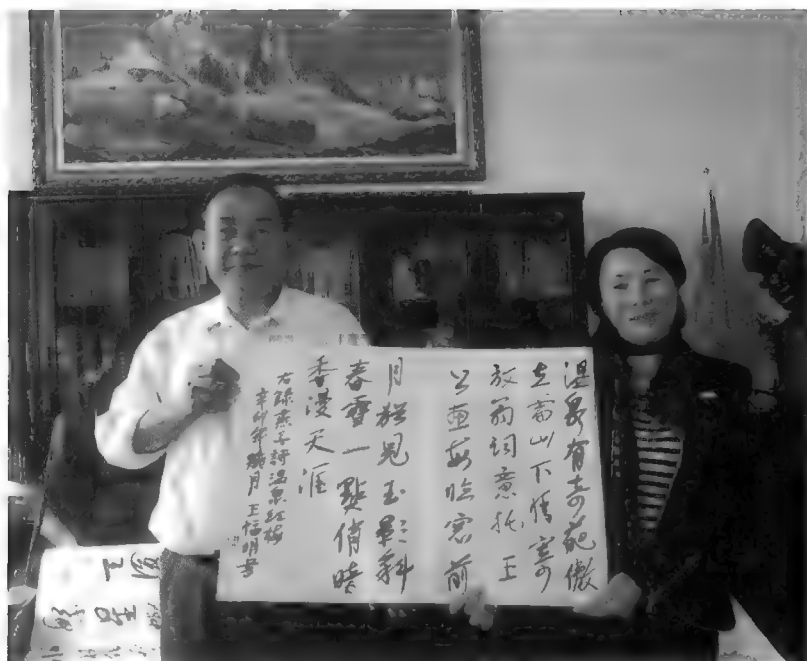 温泉有奇葩傲
立山下情寄
放翁词意托王
公画每临窗前
月猶見玉影斜
春雪一點俏暗
香漫天涯
右録燕子詩温泉红梅
辛卯年腊月王明书